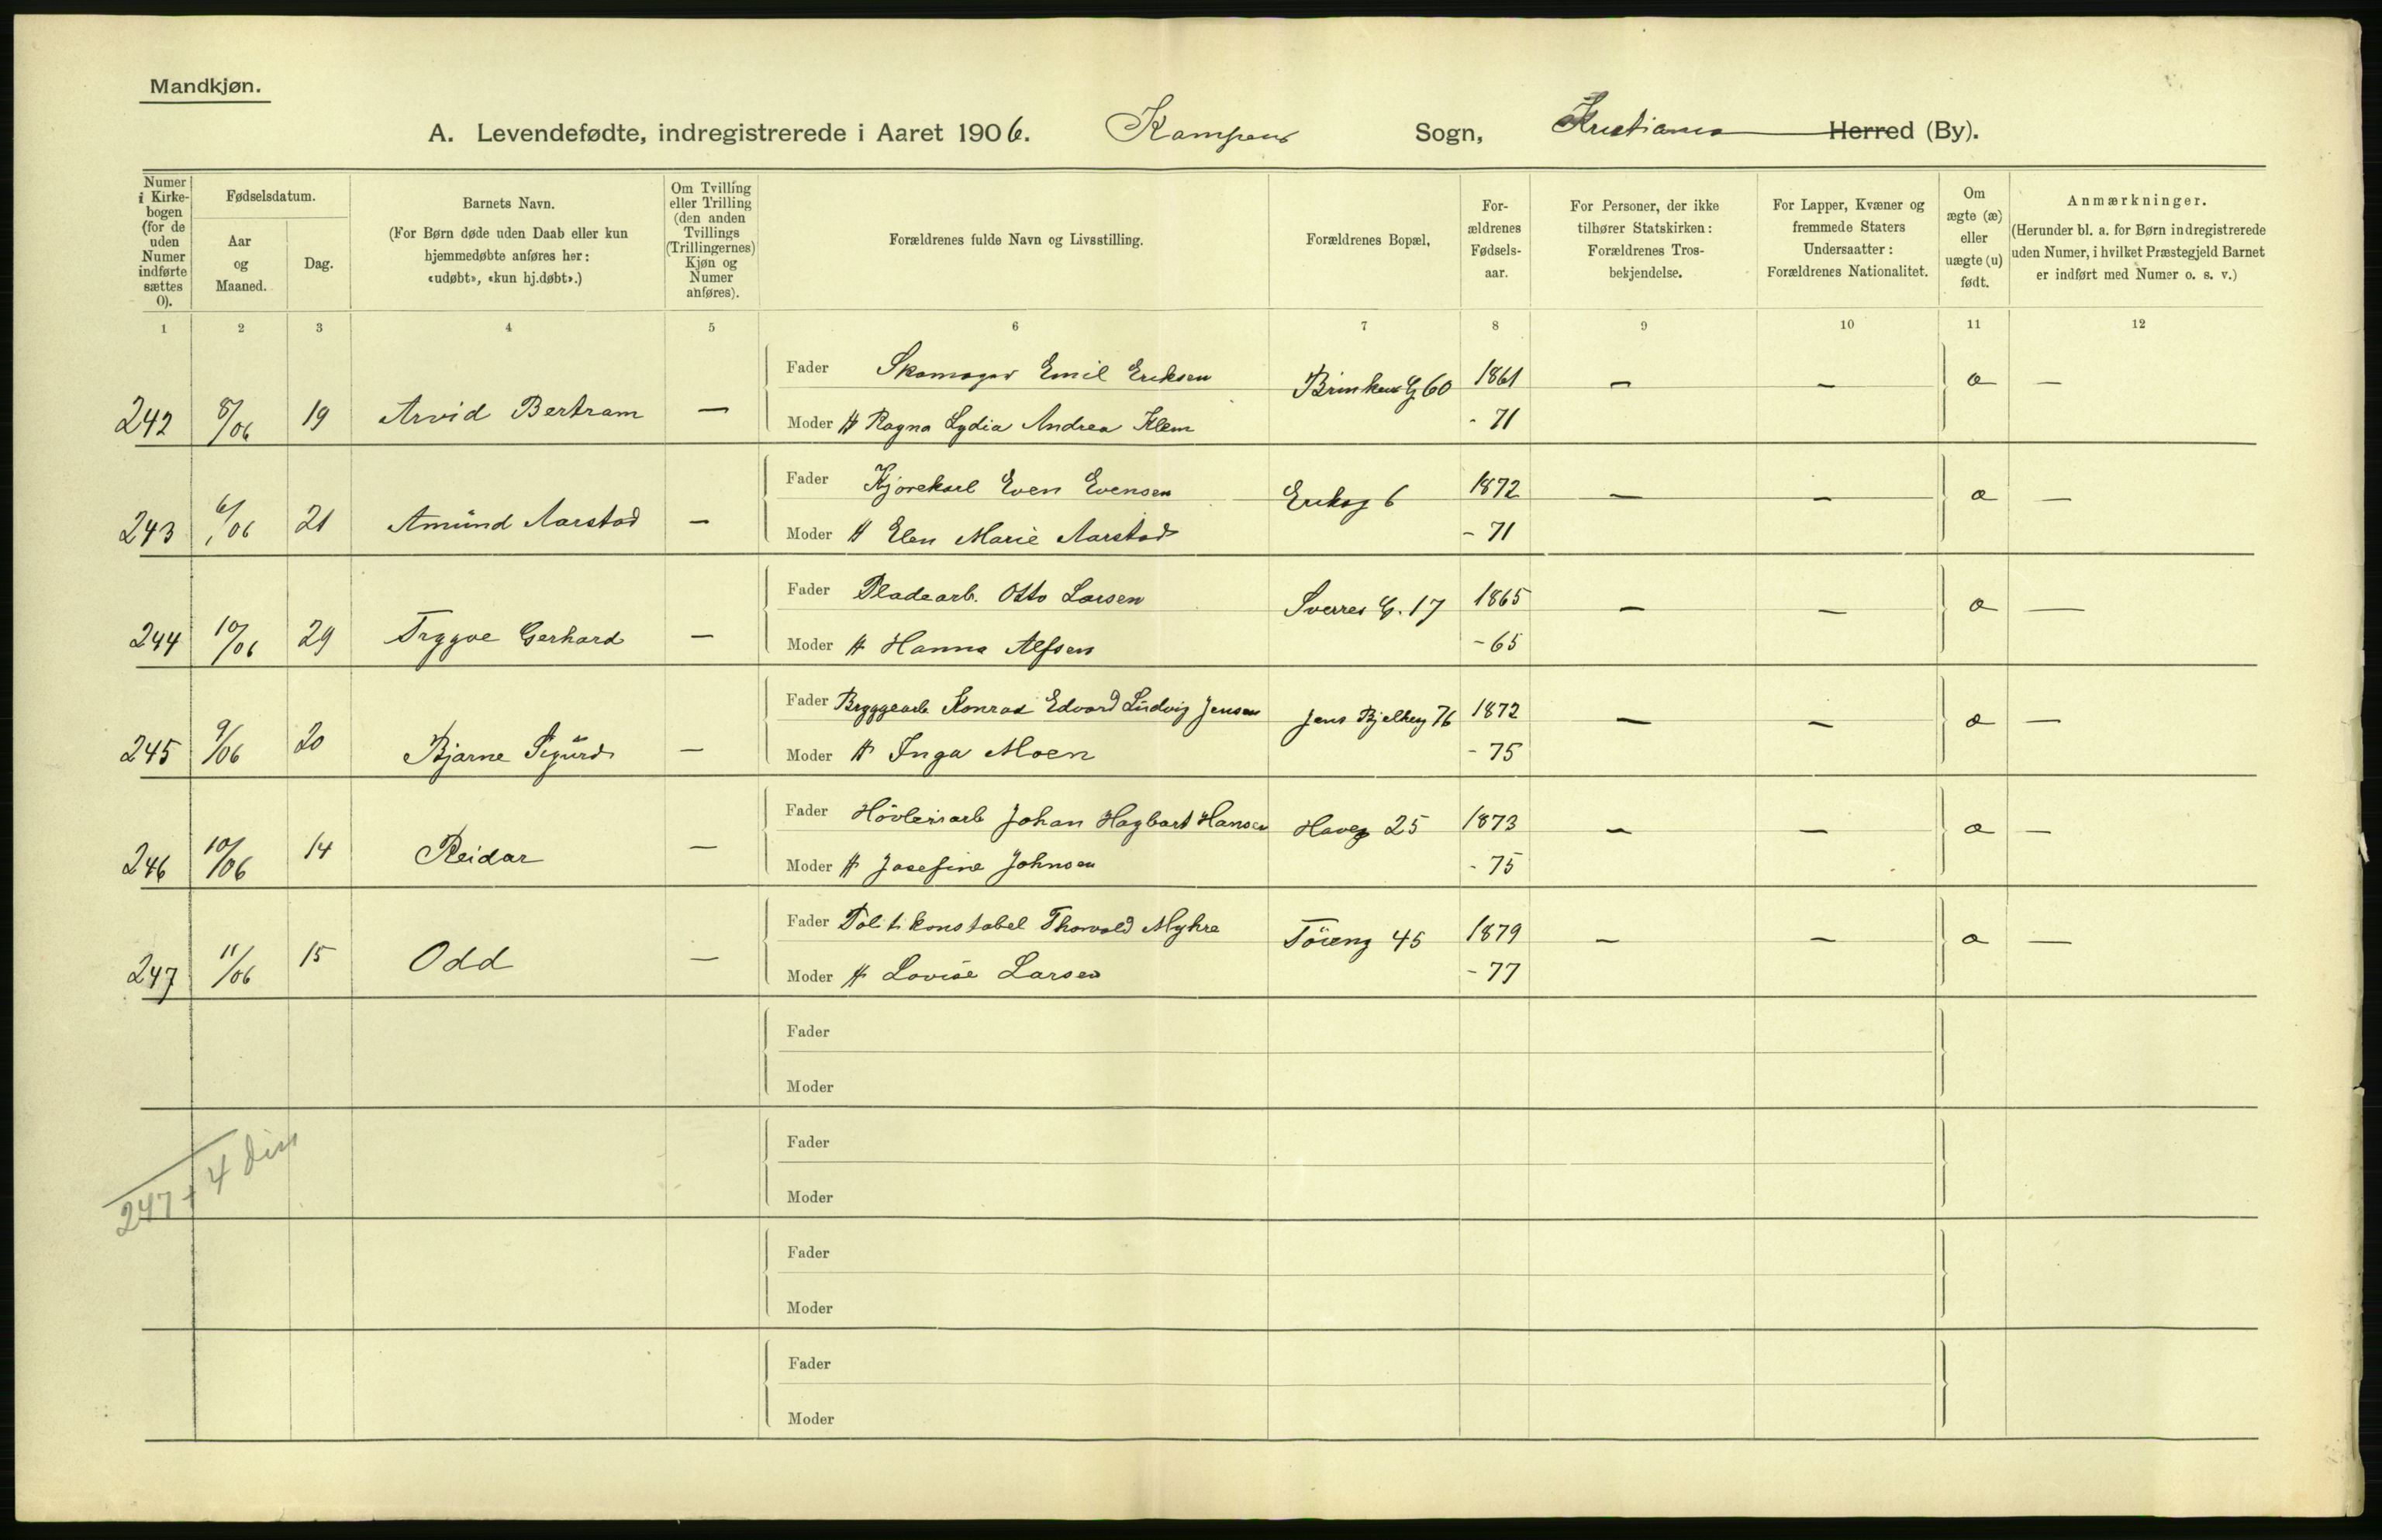 Mandkjøn.
A. Levendefødte, indregistrerede i Aaret 1906. Kampens Sogn, Kristiania Herred (By).
Numer i Kirkebogen (for de uden Numer indførte sættes 0).
Fødselsdatum.
Aar og Maaned.
Dag.
Barnets Navn.
(For Børn døde uden Daab eller kun hjemmedøbte anføres her: «udøbt», «kun hj.døbt».)
Om Tvilling eller Trilling (den anden Tvillings (Trillingernes) Kjøn og Numer anføres).
Forældrenes fulde Navn og Livsstilling.
Forældrenes Bopæl,
Forældrenes Fødselsaar.
For Personer, der ikke tilhører Statskirken: Forældrenes Trosbekjendelse.
For Lapper, Kvæner og fremmede Staters Undersaatter: Forældrenes Nationalitet.
Om ægte (æ) eller uægte (u) født.
Anmærkninger.
(Herunder bl. a. for Børn indregistrerede uden Numer, i hvilket Præstegjeld Barnet er indført med Numer o. s. v.)
1 2 3 4 5 6 7 8 9 10 11 12
Fader Skomager Emil Eriksen Brinkens G 60 1861 – – æ –
242 8/06 19 Arvid Bertram – Moder H Ragna Lydia Andrea Klem - 71
Fader Kjørekarl Even Evensen Eriksg 6 1872 – – æ –
243 6/06 21 Amund Aarstad – Moder H Elen Marie Aarstad - 71
Fader Pladearb. Otto Larsen Sverres G. 17 1865 – – æ –
244 10/06 29 Trygve Gerhard – Moder H Hanna Alfsen - 65
Fader Bryggearb Konrad Edvard Ludvig Jensen Jens Bjelkeg 76 1872 – – æ –
245 9/06 20 Bjarne Sigurd – Moder H Inga Moen - 75
Fader Høvleriarb Johan Hagbart Hansen Haveg 25 1873 – – æ –
246 10/06 14 Reidar – Moder H Josefine Johnsen - 75
Fader Politikonstabel Thorvald Myhre Tøieng 45 1879 – – æ –
247 11/06 15 Odd – Moder H Lovise Larsen - 77
Fader
Moder
Fader
247 + 4 diss
Moder
Fader
Moder
Fader
Moder